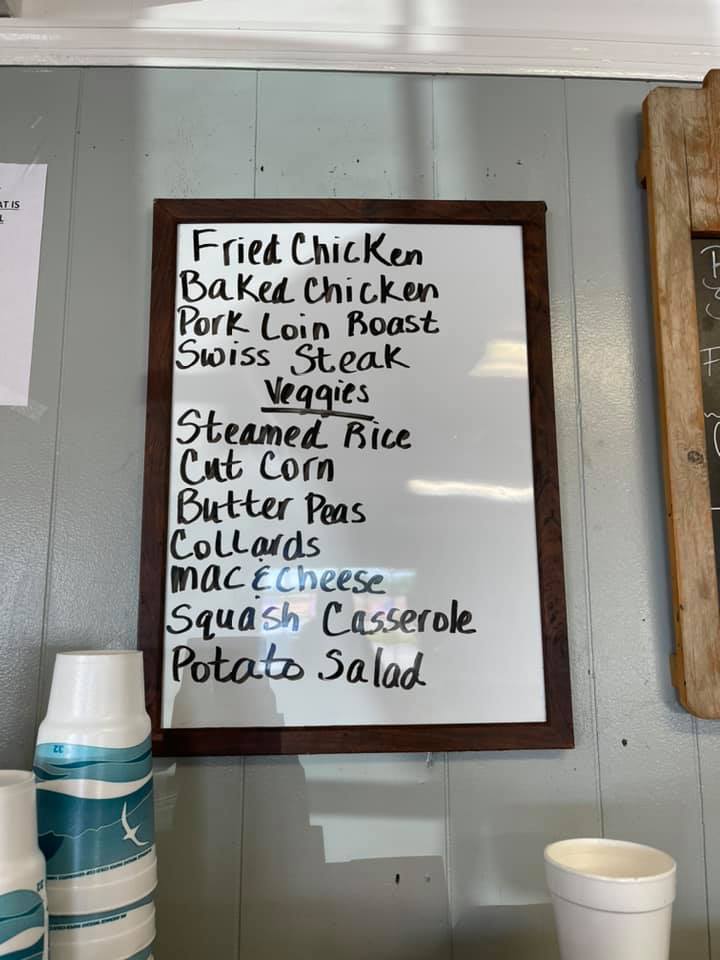 Fried Chicken
Baked Chicken
Pork Loin Roast
Swiss Steak
Veggies
Steamed Rice
Cut Corn
Butter Peas
Collards
mac & Cheese
Squash Casserole
Potato Salad
AT IS
32